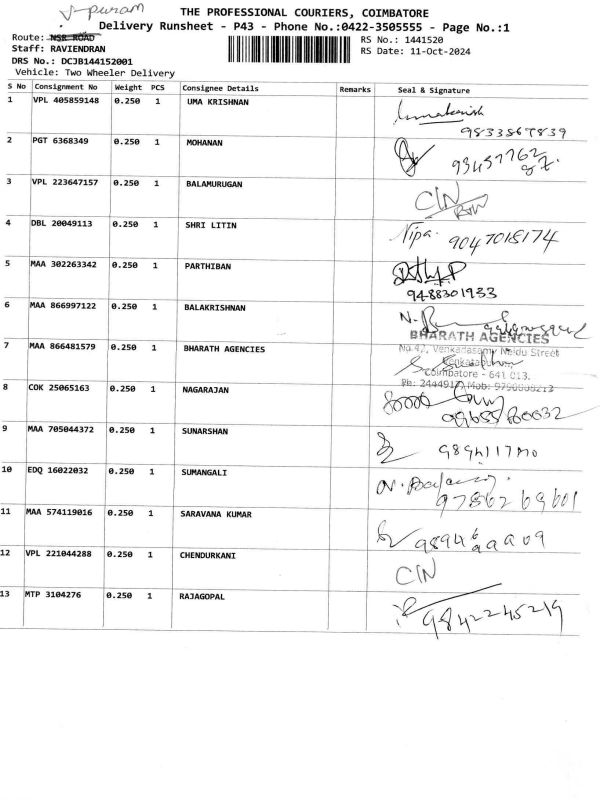 V-puram
THE PROFESSIONAL COURIERS, COIMBATORE
Delivery Runsheet - P43 - Phone No.:0422-3505555 - Page No.:1
Route: NSR ROAD
RS No.: 1441520
Staff: RAVIENDRAN
RS Date: 11-Oct-2024
DRS No.: DCJB144152001
Vehicle: Two Wheeler Delivery
S No Consignment No Weight PCS Consignee Details Remarks Seal & Signature
1 VPL 405859148 0.250 1 UMA KRISHNAN
9833867839
2 PGT 6368349 0.250 1 MOHANAN
3 VPL 223647157 0.250 1 BALAMURUGAN CIN
4 DBL 20049113 0.250 1 SHRI LITIN Nipa. 9047015174
5 MAA 302263342 0.250 1 PARTHIBAN
94-88301933
6 MAA 866997122 0.250 1 BALAKRISHNAN
7 MAA 866481579 0.250 1 BHARATH AGENCIES BHARATH AGENCIES
No.47, Venkadasamy Naidu Street
Coimbatore - 641 013.
8 COK 25065163 0.250 1 NAGARAJAN
9 MAA 705044372 0.250 1 SUNARSHAN
10 EDQ 16022032 0.250 1 SUMANGALI
9786269601
11 MAA 574119016 0.250 1 SARAVANA KUMAR
12 VPL 221044288 0.250 1 CHENDURKANI CIN
13 MTP 3104276 0.250 1 RAJAGOPAL 9842245219